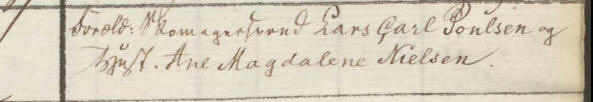 Foræld: Skomagersvend Lars Carl Poulsen og
Hust. Ane Magdalene Nielsen.